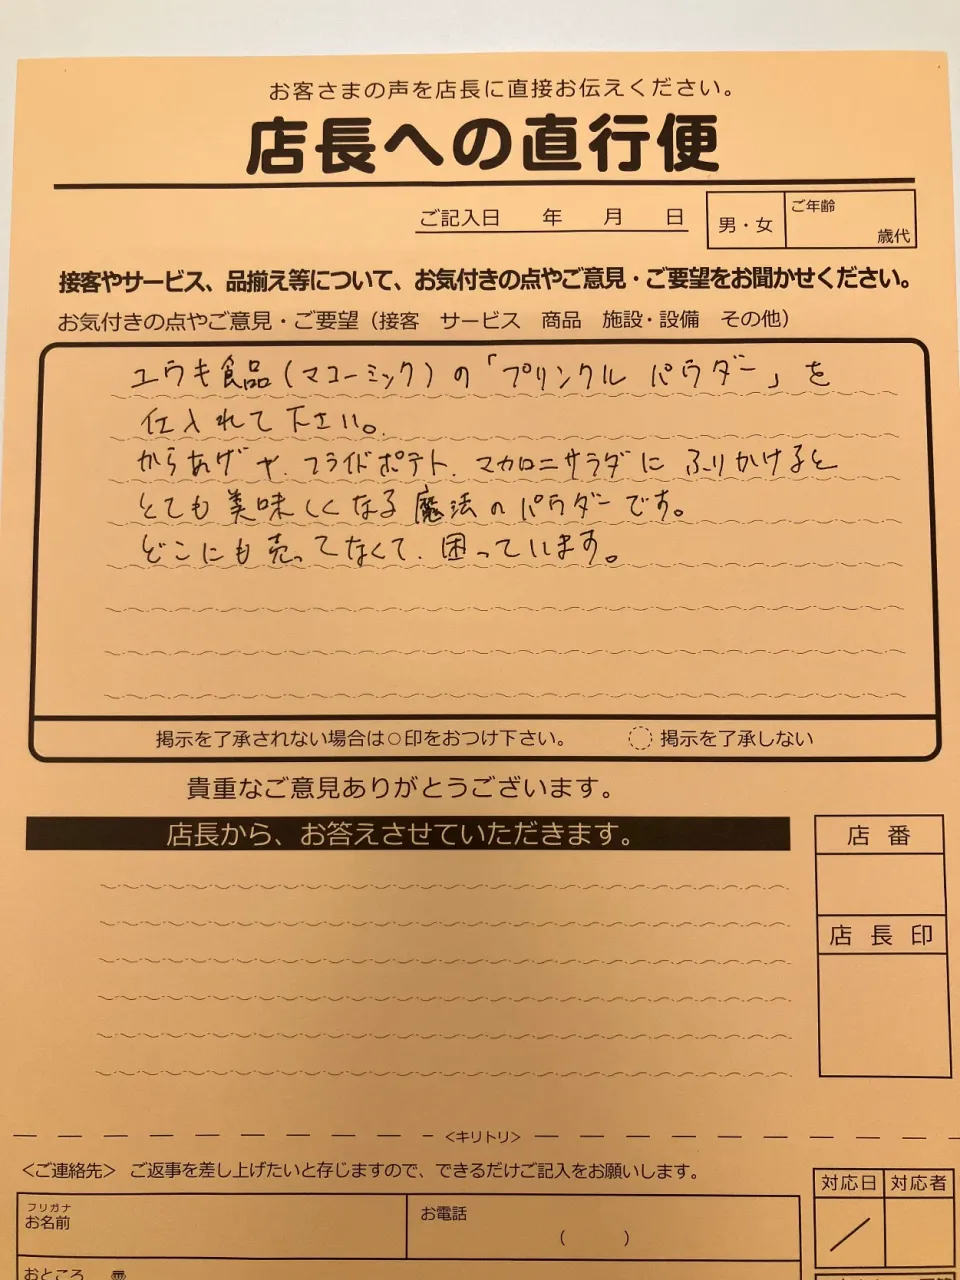 お客さまの声を店長に直接お伝えください。
店長への直行便
ご記入日 年 月 日
男・女
ご年齢
歳代
接客やサービス、品揃え等について、お気付きの点やご意見・ご要望をお聞かせください。
お気付きの点やご意見・ご要望（接客 サービス 商品 施設・設備 その他）
ユウキ食品(マコーミック)の「プリンクル パウダー」を
仕入れて下さい。
からあげや、フライドポテト、マカロニサラダにふりかけると
とても美味しくなる魔法のパウダーです。
どこにも売ってなくて、困っています。
掲示を了承されない場合は○印をおつけ下さい。 掲示を了承しない
貴重なご意見ありがとうございます。
店長から、お答えさせていただきます。
店番
店長印
<キリトリ>
<ご連絡先> ご返事を差し上げたいと存じますので、できるだけご記入をお願いします。
対応日 対応者
フリガナ
お名前
お電話
( )
おところ